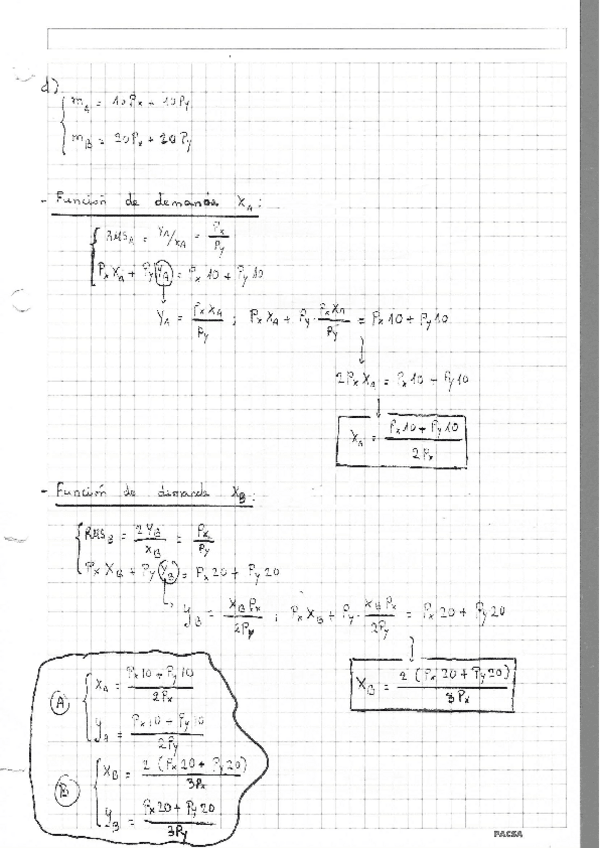 d)
m_A = 10Px + 10Py
m_B = 20Px + 20Py
- Función de demanda X_A :
RMS_A = Y_A/X_A = Px/Py
Px X_A + Py Y_A = Px 10 + Py 10
Y_A = Px X_A / Py ; Px X_A + Py · Px X_A / Py = Px 10 + Py 10
2Px X_A = Px 10 + Py 10
X_A = Px 10 + Py 10 / 2Px
- Función de demanda X_B :
RMS_B = 2Y_B / X_B = Px / Py
Px X_B + Py Y_B = Px 20 + Py 20
y_B = X_B Px / 2Py ; Px X_B + Py · X_B Px / 2Py = Px 20 + Py 20
X_B = 2 (Px 20 + Py 20) / 3Px
A X_A = Px 10 + Py 10 / 2Px
y_A = Px 10 + Py 10 / 2Py
B X_B = 2 (Px 20 + Py 20) / 3Px
y_B = Px 20 + Py 20 / 3Py
PACSA